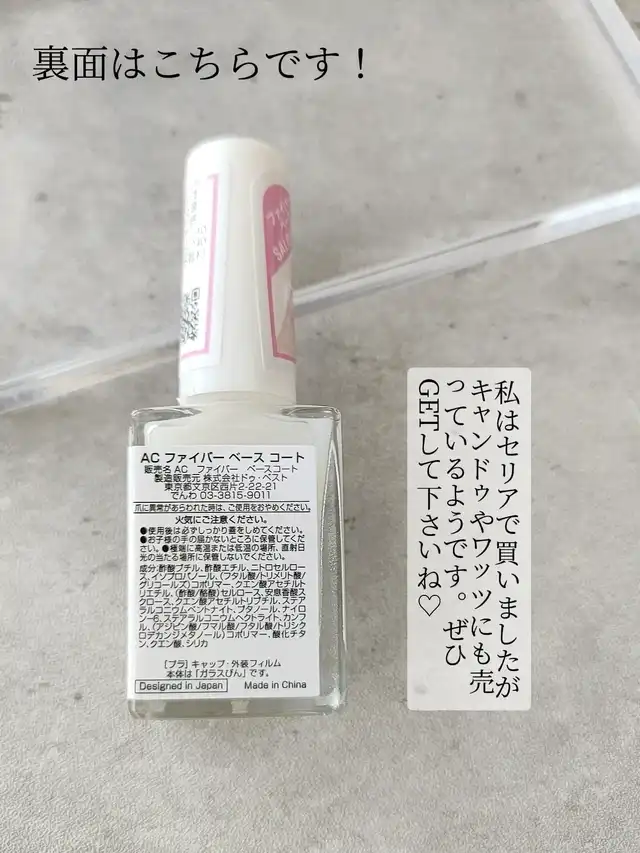 裏面はこちらです！
ファイバ
AC ファイバー ベース コート
販売名 AC　ファイバー　ベースコート
製造販売元 株式会社ドゥ・ベスト
東京都文京区西片2-22-21
でんわ 03-3815-9011
爪に異常があらわれた時は、ご使用をおやめください。
火気にご注意ください。
●使用後は必ずしっかり蓋をしめてください。
●お子様の手の届かないところに保管してく
ださい。●極端に高温または低温の場所、直射日
光の当たる場所に保管しないでください。
成分:酢酸ブチル、酢酸エチル、ニトロセルロー
ス、イソプロパノール、(フタル酸/トリメリト酸/
グリコールズ)コポリマー、クエン酸アセチルト
リエチル、(酢酸/酪酸)セルロース、安息香酸ス
クロース、クエン酸アセチルトリブチル、ステア
ラルコニウムベントナイト、ブタノール、ナイロ
ン-6、ステアラルコニウムヘクトライト、カンフ
ル、(アジピン酸/フマル酸/フタル酸/トリシク
ロデカンジメタノール)コポリマー、酸化チタ
ン、クエン酸、シリカ
[プラ] キャップ・外装フィルム
本体は「ガラスびん」です。
Designed in Japan
Made in China
私はセリアで買いましたが
キャンドゥやワッツにも売
っているようです。ぜひ
GETして下さいね♡